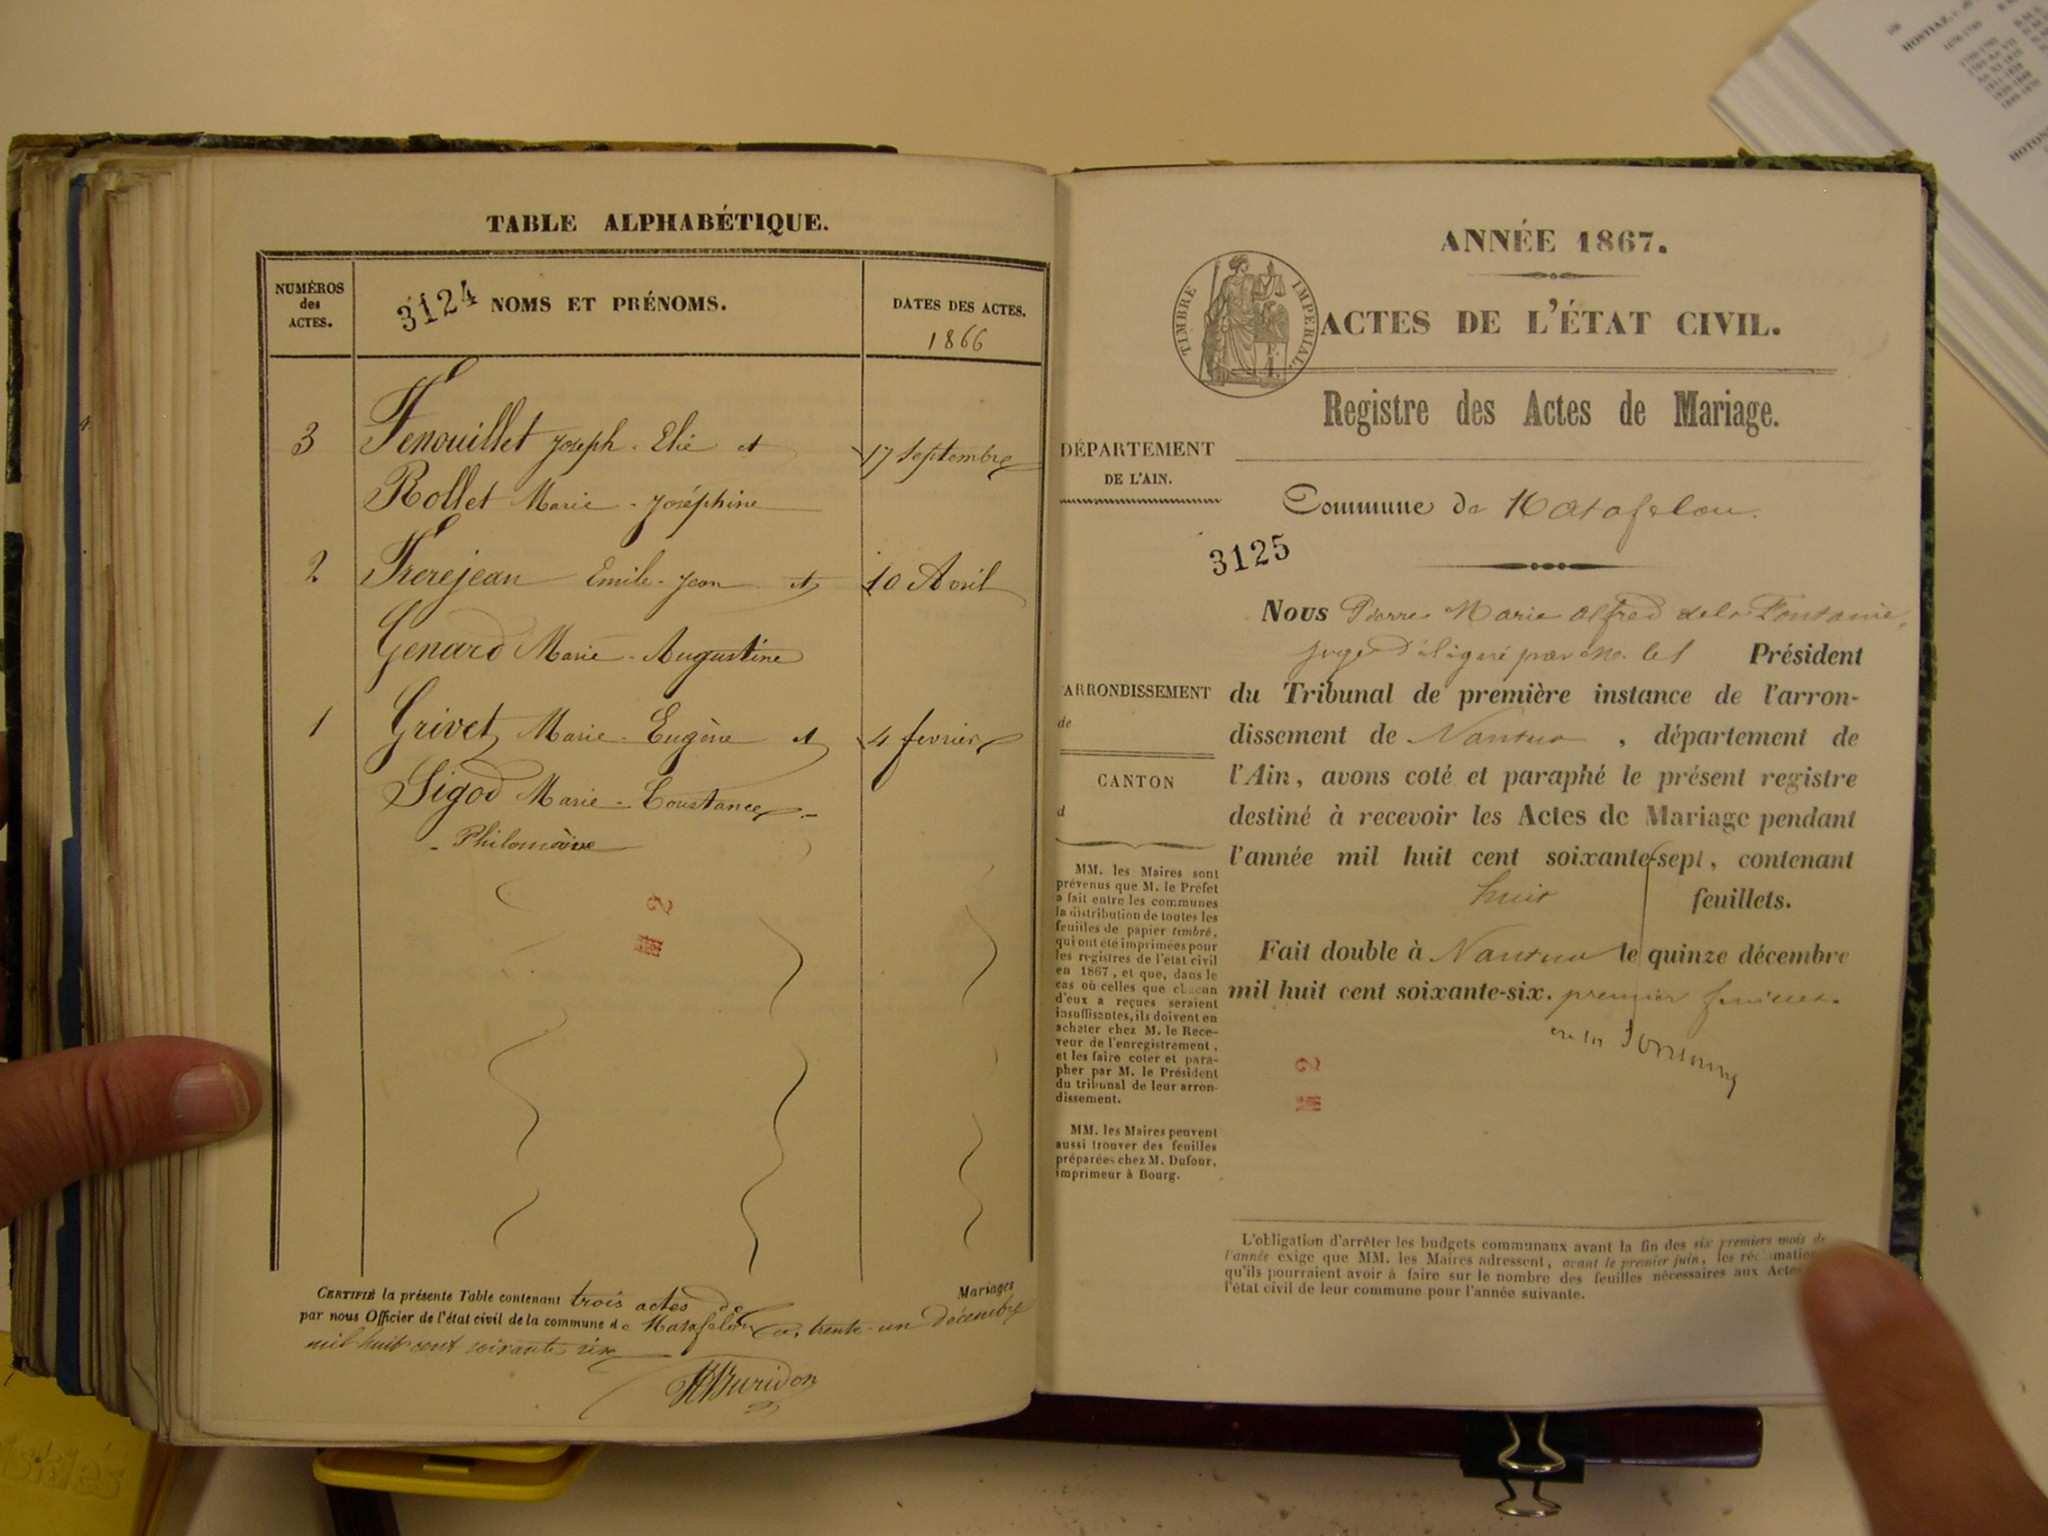 TABLE ALPHABÉTIQUE.
NUMÉROS des ACTES.
3124 NOMS ET PRÉNOMS.
DATES DES ACTES.
1866
3 Fenouillet Joseph-Elie et 17 Septembre
Rollet Marie-Joséphine
2 Frerejean Emile-Jean et 10 Avril
Genard Marie-Augustine
1 Grivet Marie-Eugène et 4 fevrier
Sigod Marie-Constance-
-Philomène
2
CERTIFIÉ la présente Table contenant trois actes de Mariages
par nous Officier de l'état civil de la commune de Matafelon ce trente-un décembre
mil huit cent soixante six
Buridon
ANNÉE 1867.
TIMBRE IMPERIAL.
ACTES DE L'ÉTAT CIVIL.
Registre des Actes de Mariage.
DÉPARTEMENT
DE L'AIN.
Commune de Matafelon.
3125
Nous Pierre Marie Alfred dela Fontaine,
juge délégué par Mr. le Président
du Tribunal de première instance de l'arron-
dissement de Nantua, département de
l'Ain, avons coté et paraphé le présent registre
destiné à recevoir les Actes de Mariage pendant
l'année mil huit cent soixante-sept, contenant
huit feuillets.
Fait double à Nantua le quinze décembre
mil huit cent soixante-six. premier feuillet.
ARRONDISSEMENT
de
CANTON
d
MM. les Maires sont
prévenus que M. le Préfet
a fait entre les communes
la distribution de toutes les
feuilles de papier timbré,
qui ont été imprimées pour
les registres de l'état civil
en 1867, et que, dans le
cas où celles que chacun
d'eux a reçues seraient
insuffisantes, ils doivent en
acheter chez M. le Rece-
veur de l'enregistrement,
et les faire coter et para-
pher par M. le Président
du tribunal de leur arron-
dissement.
MM. les Maires peuvent
aussi trouver des feuilles
préparées chez M. Dufour,
imprimeur à Bourg.
2
L'obligation d'arrêter les budgets communaux avant la fin des six premiers mois de
l'année exige que MM. les Maires adressent, avant le premier juin, les
qu'ils pourraient avoir à faire sur le nombre des feuilles nécessaires aux Actes
l'état civil de leur commune pour l'année suivante.
HOSTIAZ,